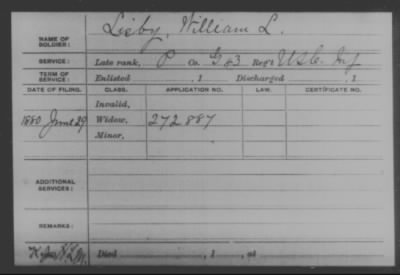 NAME OF SOLDIER: Ligby, William L.
SERVICE: Late rank, P Co. G 83 Reg't U.S.C. Inf
TERM OF SERVICE: Enlisted , 1 Discharged , 1
DATE OF FILING. CLASS. APPLICATION NO. LAW. CERTIFICATE NO.
Invalid,
1880 June 29 Widow, 272887
Minor,
ADDITIONAL SERVICES:
REMARKS:
Died , 1 , at